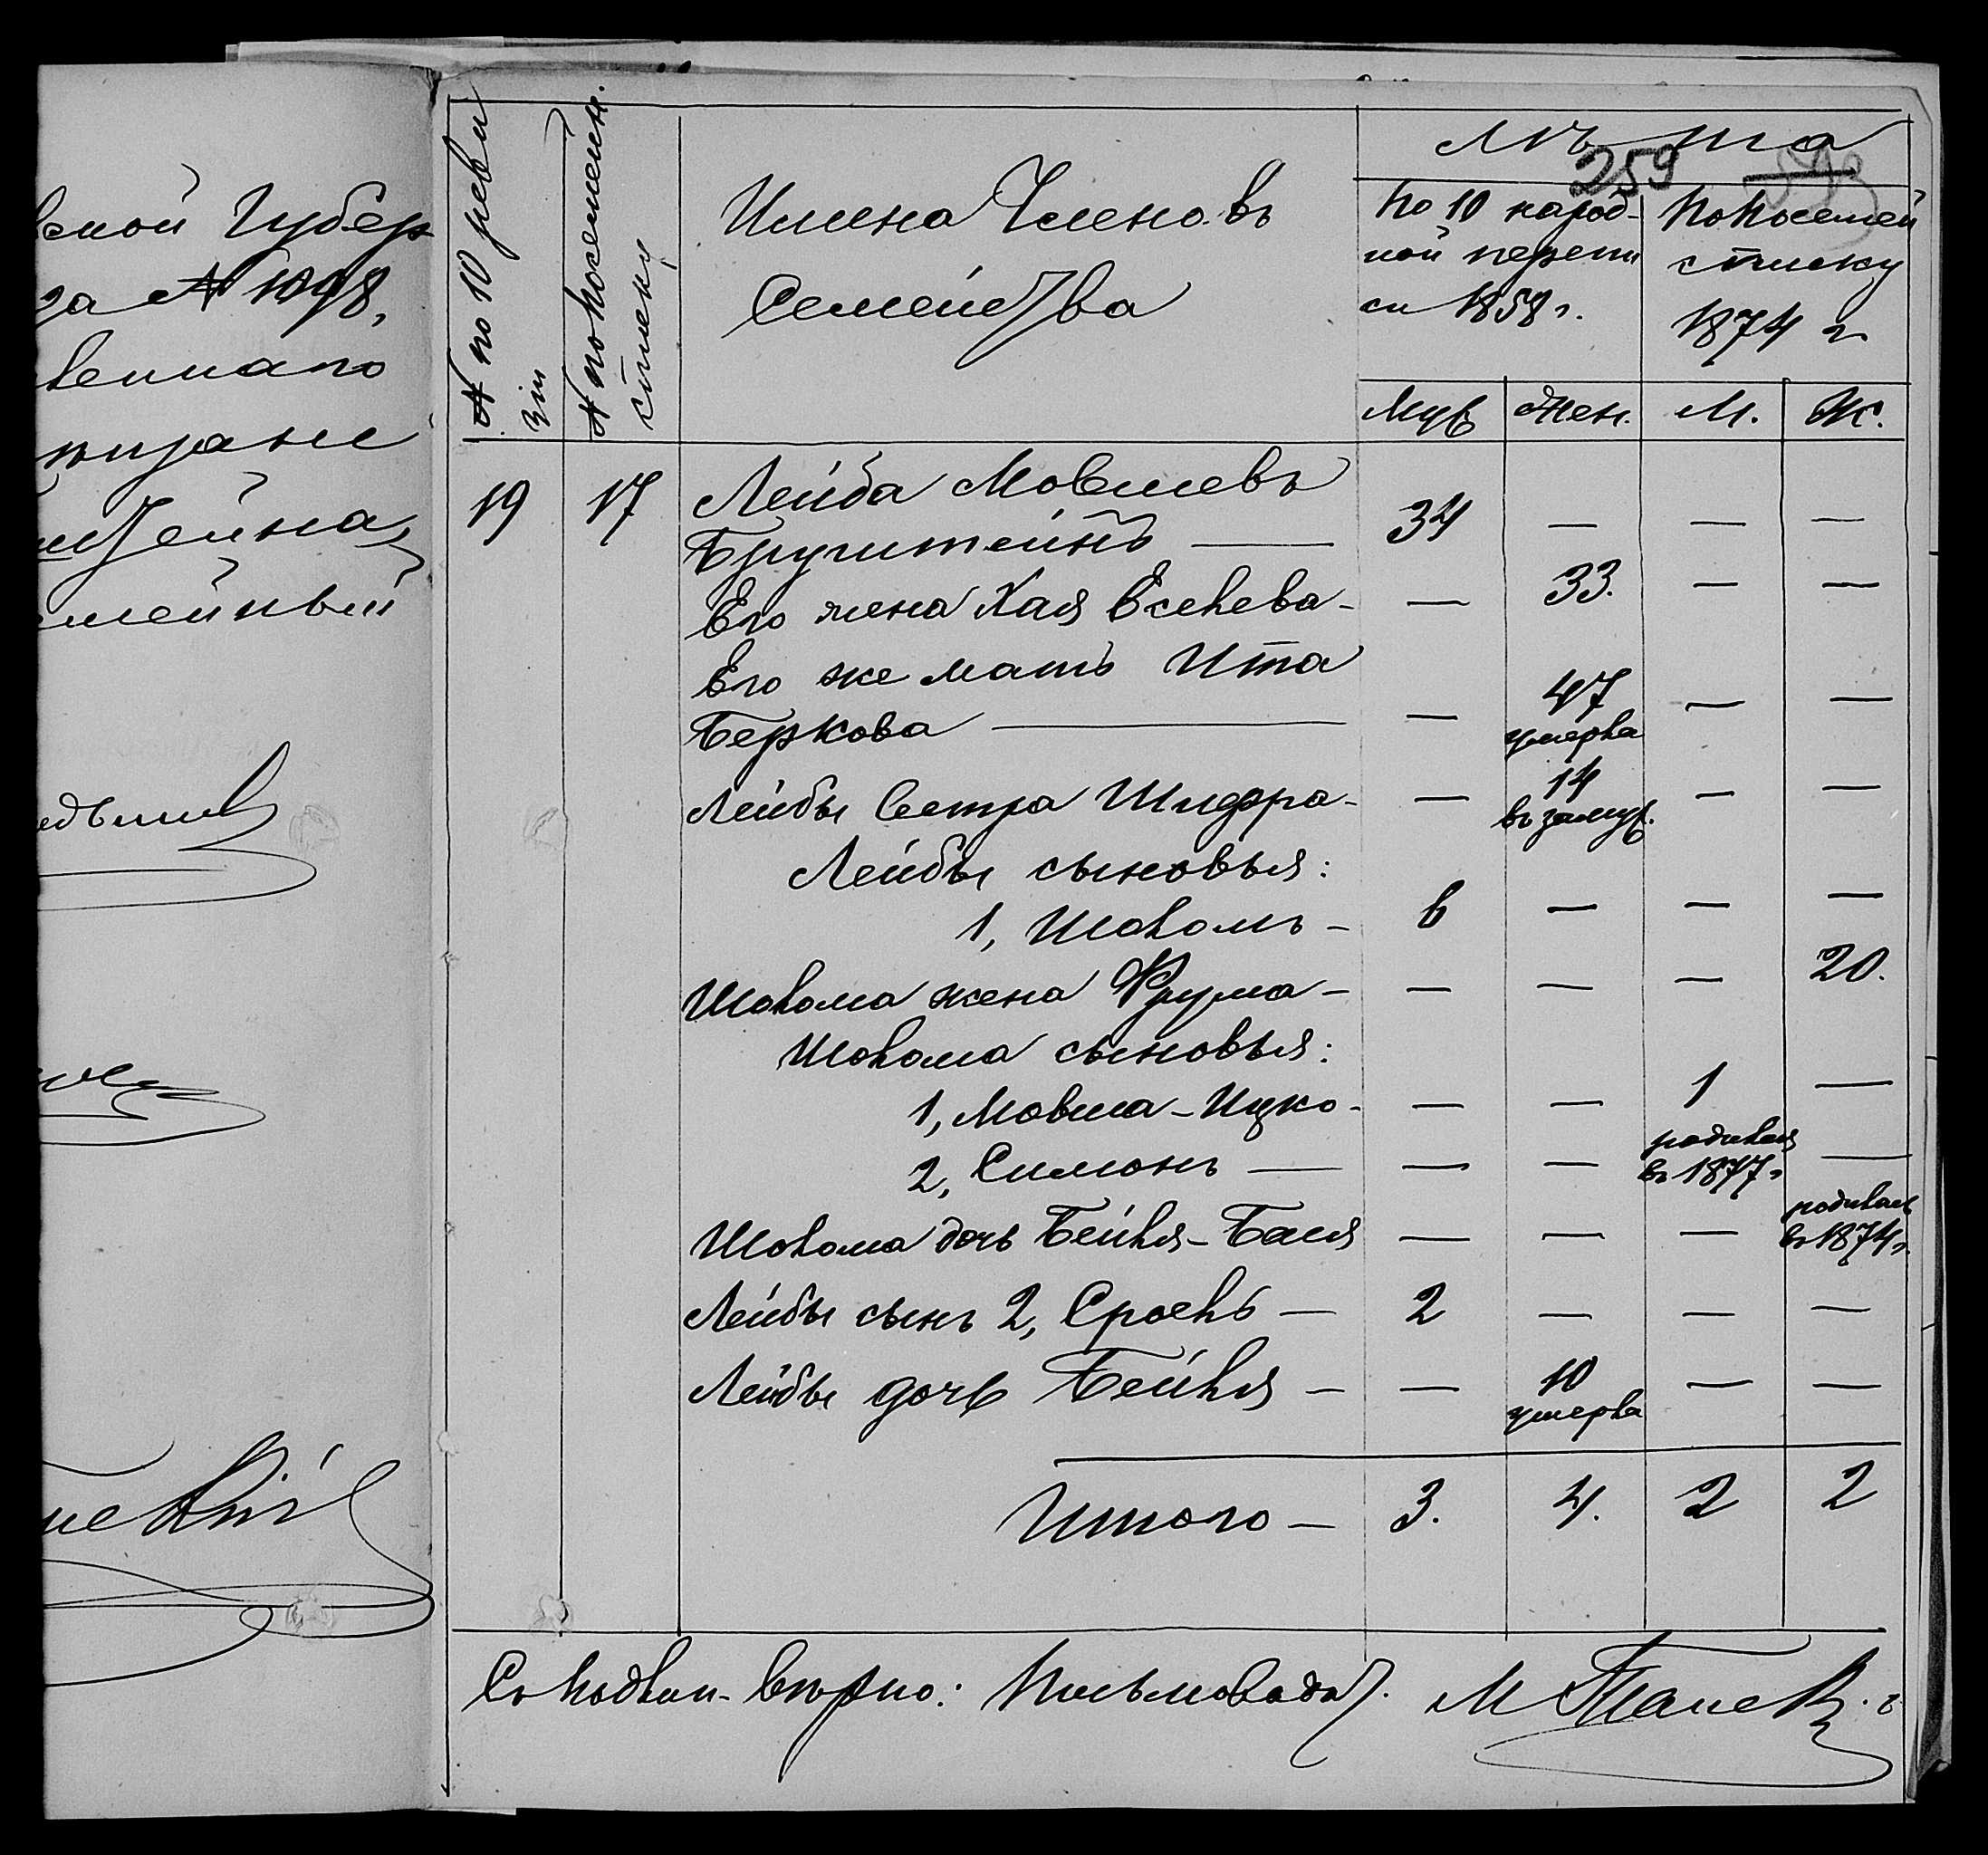 ской Губер
за № 1098,
веннаго
мейный
№ по 10 реви
зіи
№ по посемейн.
списку
Имена Членовъ
Семейства
Лѣта
259
По 10 народ-
ной перепи
си 1858 г.
По посемей
списку
1874 г
Муж
Жен.
М.
Ж.
19 17 Лейба Мовшевъ
Бруштейнъ — 34 — — —
Его жена Хая Есенева - — 33. — —
Его же мать Ита
Беркова — — 47 — —
умерла
Лейбы Сестра Шифра - — 14 — —
въ замуж.
Лейбы сыновья:
1, Шоломъ - 6 — — —
Шолома жена Фрума - — — — 20.
Шолома сыновья:
1, Мовша-Ицко - — — 1 —
2, Симонъ — — — родился —
въ 1877 г
Шолома дочь Бейля-Бася — — — родилась
въ 1874 г.
Лейбы сынъ 2, Сроель — 2 — — —
Лейбы дочь Бейля - — 10 — —
умерла
Итого — 3. 4. 2 2
Съ подлин. вѣрно: Письмовод.